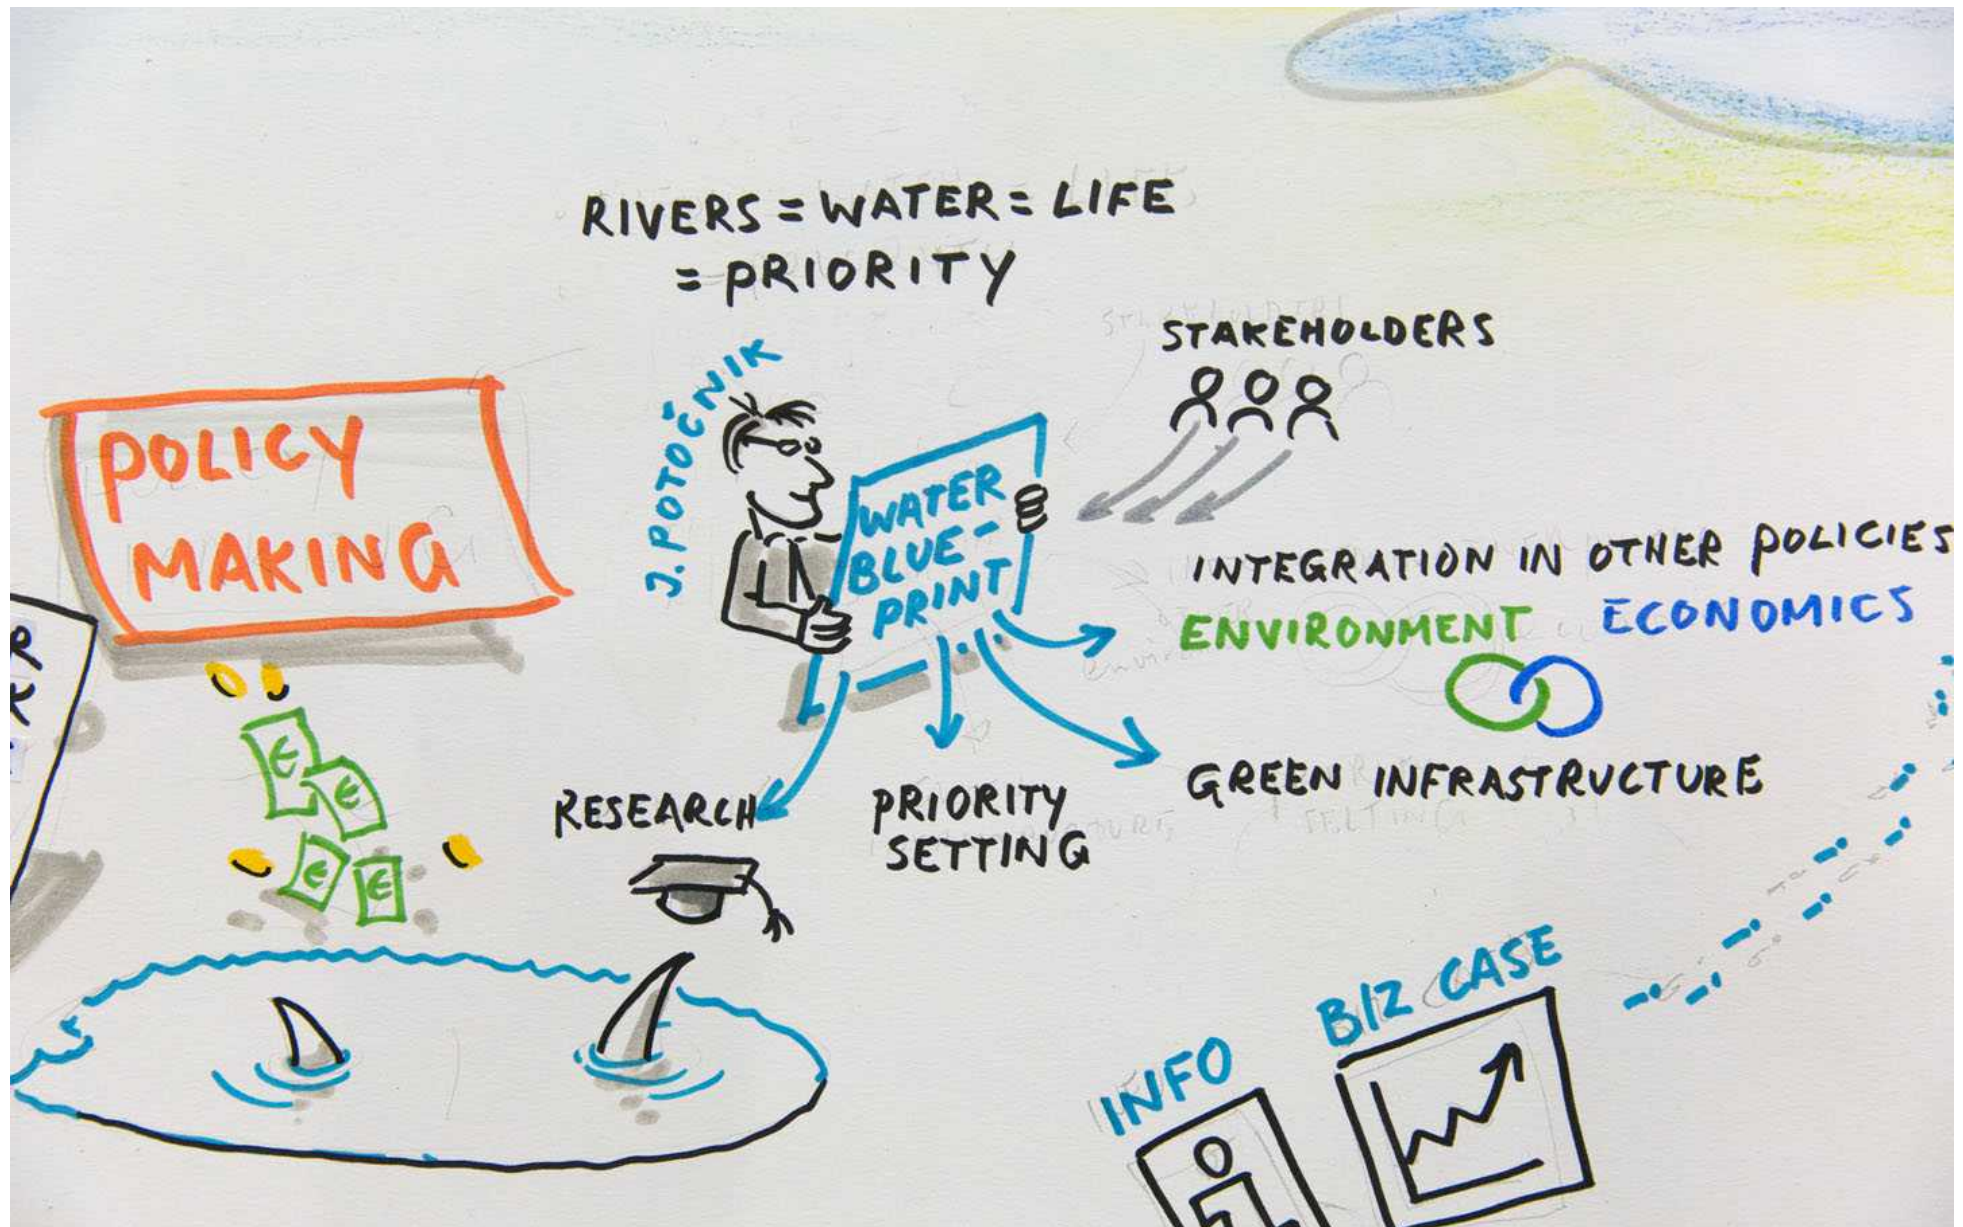 RIVERS = WATER = LIFE
= PRIORITY
STAKEHOLDERS
J. POTOČNIK
POLICY
MAKING
WATER
BLUE-
PRINT
INTEGRATION IN OTHER POLICIES
ENVIRONMENT ECONOMICS
GREEN INFRASTRUCTURE
RESEARCH
PRIORITY
SETTING
€
€
€
€
BIZ CASE
INFO